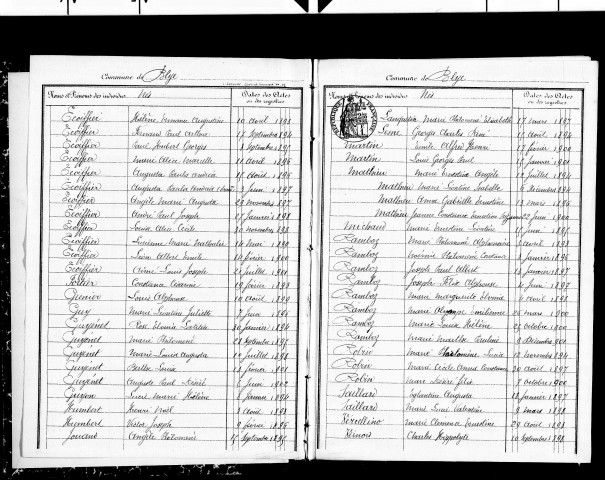 Commune de Blye
Noms et Prénoms des individus Nés Dates des Actes
ou des registres
Ecoiffier Hélène Germaine Augustine 10 Avril 1893
Ecoiffier Fernand Paul Arthur 17 Septembre 1894
Ecoiffier Paul Joubert Georges 1 Septembre 1897
Ecoiffier Marie Alice Marcelle 11 Avril 1896
Ecoiffier Augusta 17 Août 1896
Ecoiffier Augusta 3 Juin 1897
Ecoiffier Angèle Marie Augusta 28 Novembre 1897
Ecoiffier André Paul Joseph 27 Janvier 1898
Ecoiffier Louise Alice Cécile 30 Novembre 1898
Ecoiffier Lucienne Marie Mathilde 14 Mai 1899
Ecoiffier Léon Albert Emile 14 Février 1900
Ecoiffier Aimé Louis Joseph 21 Juillet 1901
Constance 19 Février 1893
Louis Alphonse 10 Août 1899
Guy Marie Léontine Juliette 7 Juin 1896
Guyenet Rose 30 Janvier 1894
Guyenet Marie Philomène 28 Septembre 1897
Guyenet Marie Louise Augusta 19 Juillet 1898
Guyenet Berthe Louise 13 Février 1901
Guyenet Auguste Paul Désiré 6 Juin 1902
Guyon Lucie Marie Hélène 1 Janvier 1894
Humbert Henri Noël 3 Août 1893
Humbert Victor Joseph 9 Février 1895
Jouand Angèle Philomène 15 Septembre 1895
Commune de Blye
Noms et Prénoms des individus Nés Dates des Actes
ou des registres
Marie Philomène Elisabeth 17 Mars 1897
Georges Charles René 17 Août 1894
Martin Emile Alfred Henri 17 Février 1900
Martin Louis Georges Paul 15 Janvier 1901
Mathieu Marie Ernestine Angèle 12 Juillet 1894
Mathieu Marie Léontine Isabelle 6 Décembre 1894
Mathieu Anna Gabrielle Ernestine 13 Mars 1896
Mathieu Jeanne Constance Ernestine 22 Juin 1900
Michaud Marie Ernestine Léontine 11 Juin 1897
Ramboz Marie Philomène Alphonsine 3 Avril 1893
Ramboz Noémie Philomène Constance 3 Janvier 1895
Ramboz Joseph Paul Albert 1 Janvier 1897
Ramboz Joseph Félix Alphonse 4 Juin 1897
Ramboz Marie Marguerite 11 Août 1898
Ramboz Marie Emilienne 26 Mars 1900
Ramboz Marie Louise Hélène 27 Octobre 1900
Ramboz Marie Marthe Pauline 9 Décembre 1901
Robin Marie Philomène Lucie 12 Novembre 1894
Robin Marie Cécile Anna Constance 20 Août 1897
Robin Marc Désiré Félix 7 Octobre 1900
Saillard Eglantine Augusta 18 Janvier 1897
Saillard Marie Lucie Valentine 9 Mars 1898
Marie Clémence Ernestine 29 Août 1893
Charles Hippolyte 10 Septembre 1898